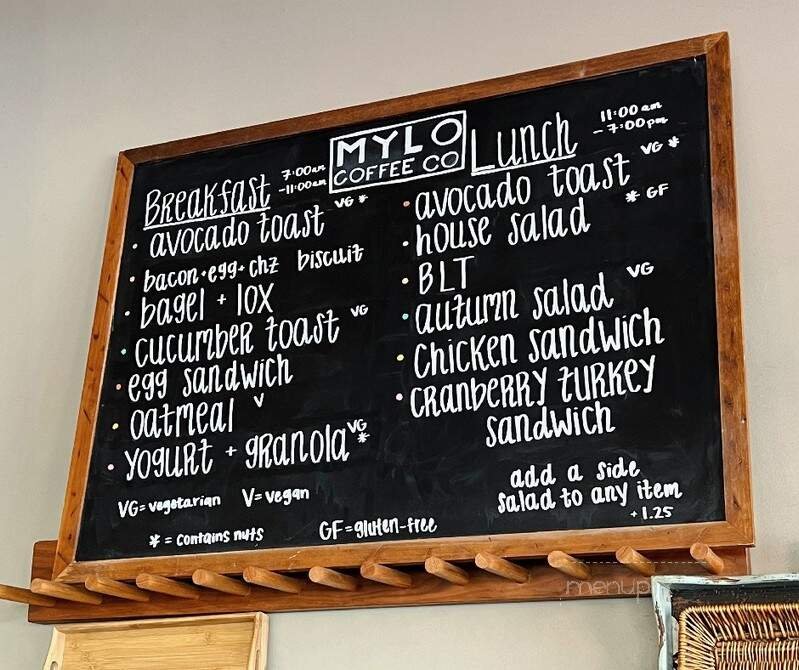 MYLO
COFFEE CO
Breakfast 7:00am
-11:00am
avocado toast VG *
bacon+egg+chz biscuit
bagel + lox
cucumber toast VG
egg sandwich
oatmeal V
yogurt + granola VG *
VG=vegetarian V=vegan
* = contains nuts
GF=gluten-free
Lunch 11:00am
-7:00pm
avocado toast VG *
house salad * GF
BLT
autumn salad VG
chicken sandwich
cranberry turkey
sandwich
add a side
salad to any item
+1.25
menup